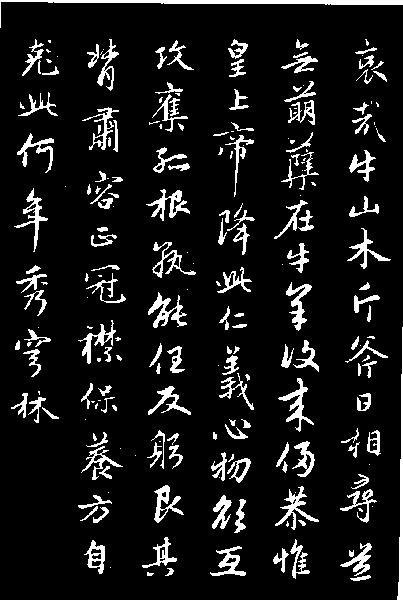 哀哉牛山木斤斧日相尋豈
無萌蘗在牛羊復來侵恭惟
皇上帝降此仁義心物欲互
攻奪孤根孰能任反躬艮其
背肅容正冠襟保養方自
此何年秀穹林